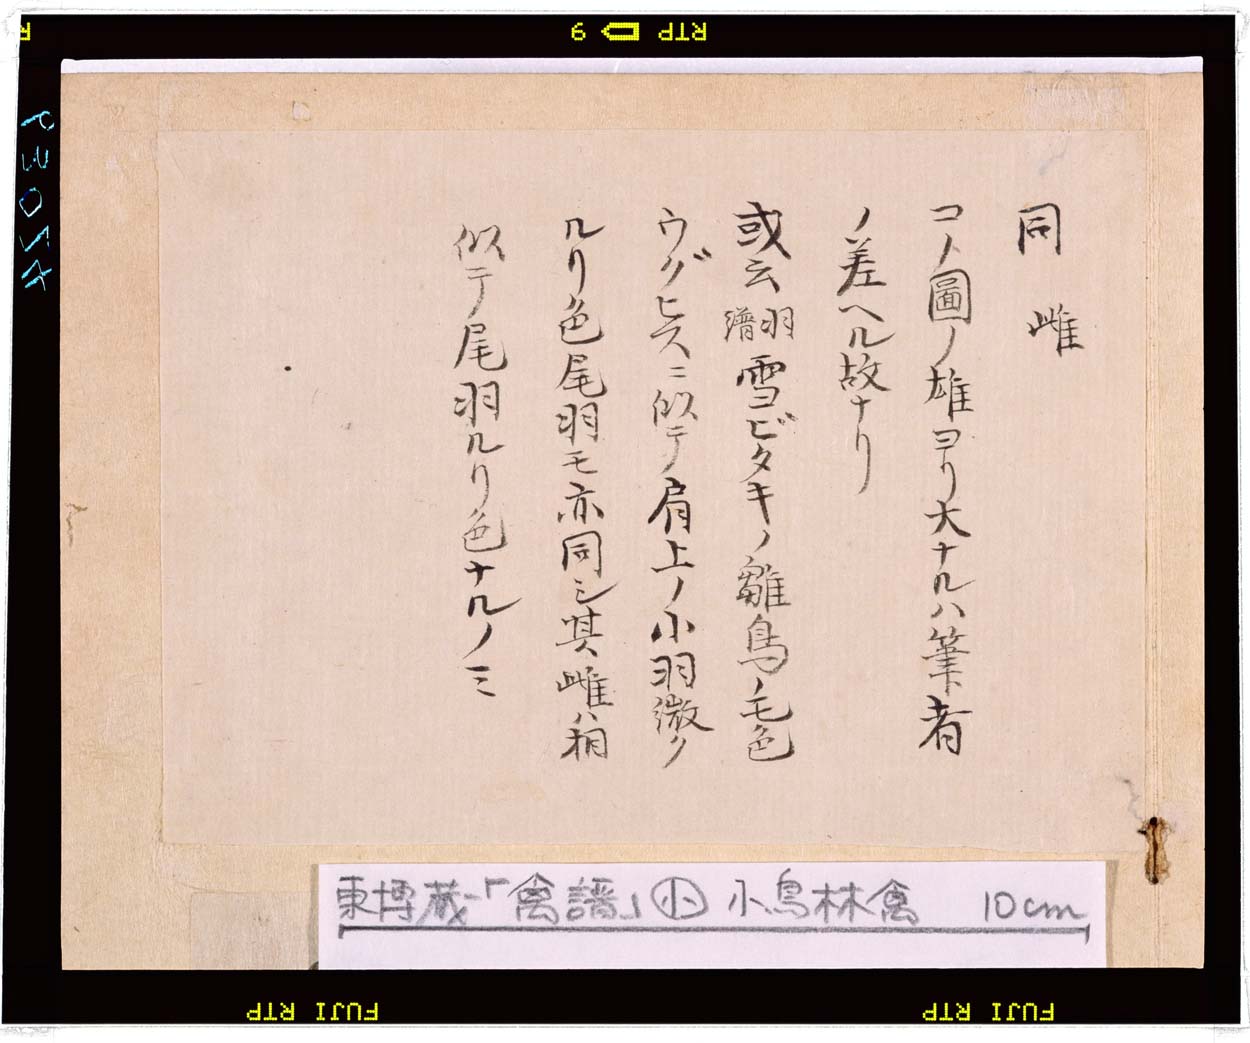 同 雌
コノ圖ノ雄ヨリ大ナルハ筆者
ノ差ヘル故ナリ
或云 羽譜 雪コビタキノ雛鳥ノ毛色
ウグヒスニ似テ肩上ノ小羽微ク
ルリ色尾羽モ亦同シ其雌ハ相
似テ尾羽ルリ色ナルノミ
東博蔵-「禽譜」㊍ 小鳥林禽 10cm
RTP 9
P30SA
FUJI RTP
FUJI RTP